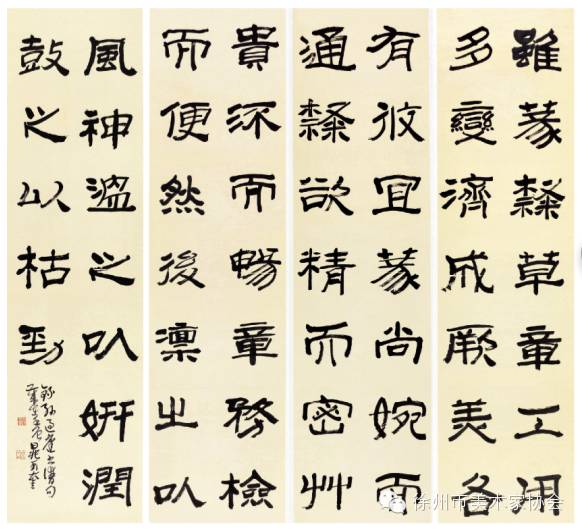 雖篆隸草章工用
多變濟成厥美各
有攸宜篆尚婉而
通隸欲精而密艸
貴流而暢章務檢
而便然後凛之以
風神温之以妍潤
鼓之以枯勁
錄孫過庭書譜句
徐州市美术家协会